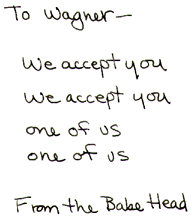 To Wagner—
We accept you
We accept you
one of us
one of us
From the Babe Head